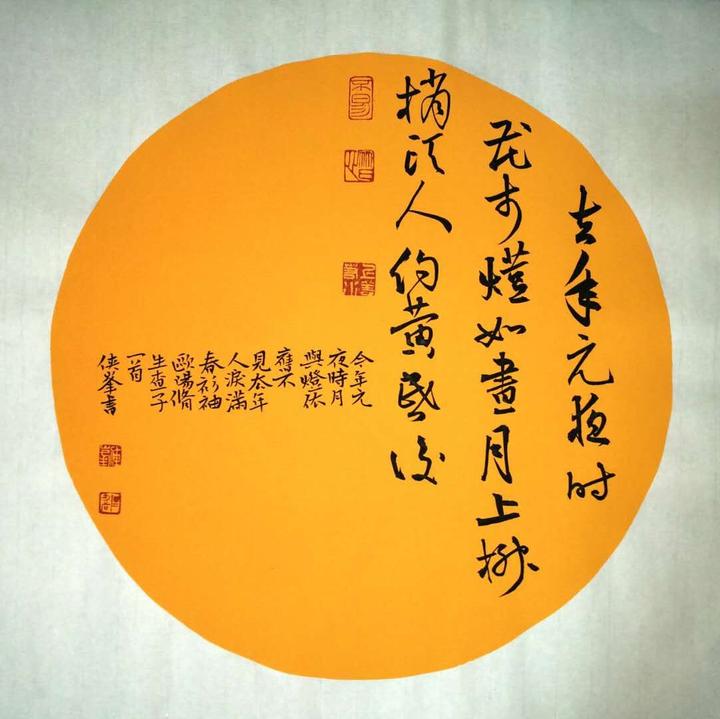 去年元夜时
花市燈如晝月上柳
梢頭人約黄昏後
上善若水
今年元
夜時月
與燈依
舊不
見去年
人淚滿
春衫袖
歐陽脩
生查子
一首
俠峯書